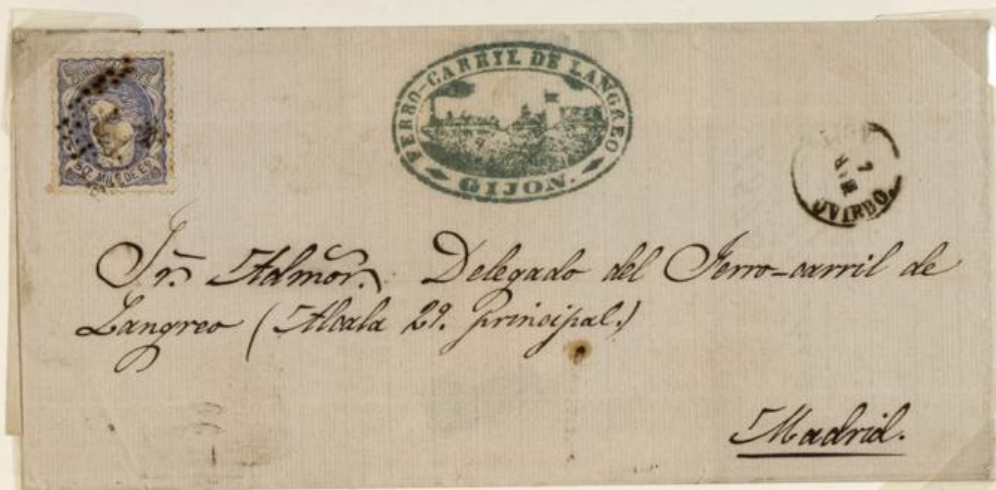 COMUNICACIONES
50 MILS DE ESO
FERRO-CARRIL DE LANGREO
GIJON.
7
MAR
OVIEDO.
Sr. Admor. Delegado del Ferro-carril de
Langreo (Alcala 29. principal.)
Madrid.